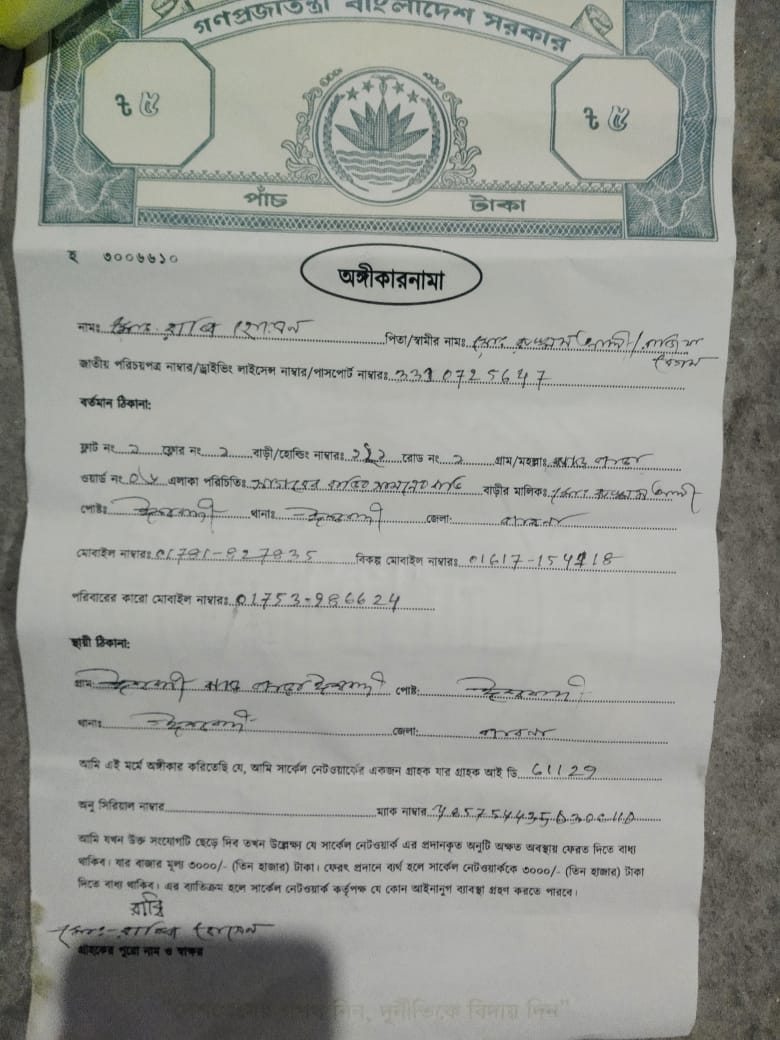 গণপ্রজাতন্ত্রী বাংলাদেশ সরকার
৳ ৫ ৳ ৫
পাঁচ টাকা
হ ৩০০৬৬১০
অঙ্গীকারনামা
নামঃ মোঃ রাব্বি হোসেন পিতা/স্বামীর নামঃ মোঃ
জাতীয় পরিচয়পত্র নাম্বার/ড্রাইভিং লাইসেন্স নাম্বার/পাসপোর্ট নাম্বারঃ 3310725647
বর্তমান ঠিকানা:
ফ্লাট নং ২ ফ্লোর নং ২ বাড়ী/হোল্ডিং নাম্বারঃ রোড নং ২ গ্রাম/মহল্লাঃ পাড়া
ওয়ার্ড নং এলাকা পরিচিতিঃ বাড়ীর মালিকঃ মোঃ
পোষ্টঃ ঈশ্বরদী থানাঃ ঈশ্বরদী জেলা: পাবনা
মোবাইল নাম্বারঃ 01781-827835 বিকল্প মোবাইল নাম্বারঃ 01617-154118
পরিবারের কারো মোবাইল নাম্বারঃ 01753-986624
স্থায়ী ঠিকানা:
গ্রাম: ঈশ্বরদী পাড়া ঈশ্বরদী পোষ্ট: ঈশ্বরদী
থানাঃ ঈশ্বরদী জেলা: পাবনা
আমি এই মর্মে অঙ্গীকার করিতেছি যে, আমি সার্কেল নেটওয়ার্কের একজন গ্রাহক যার গ্রাহক আই ডি 61129
অনু সিরিয়াল নাম্বার ম্যাক নাম্বার
আমি যখন উক্ত সংযোগটি ছেড়ে দিব তখন উল্লেক্ষ্য যে সার্কেল নেটওয়ার্ক এর প্রদানকৃত অনুটি অক্ষত অবস্থায় ফেরত দিতে বাধ্য
থাকিব। যার বাজার মূল্য ৩০০০/- (তিন হাজার) টাকা। ফেরৎ প্রদানে ব্যর্থ হলে সার্কেল নেটওয়ার্ককে ৩০০০/- (তিন হাজার) টাকা
দিতে বাধ্য থাকিব। এর ব্যতিক্রম হলে সার্কেল নেটওয়ার্ক কর্তৃপক্ষ যে কোন আইনানুগ ব্যাবস্থা গ্রহণ করতে পারবে।
রাব্বি
মোঃ-রাব্বি হোসেন
গ্রাহকের পুরো নাম ও স্বাক্ষর
নিন, দুর্নীতিকে বিদায় দিন"